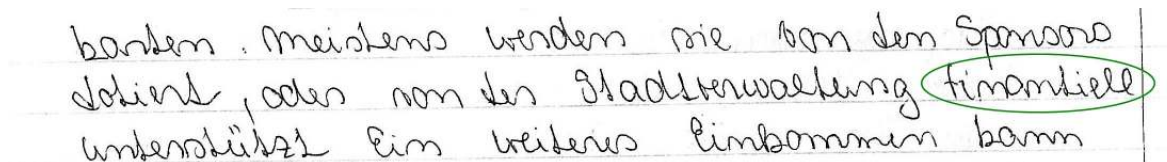 karten. Meistens werden sie von den Sponsors
dotiert, oder von der Stadtverwaltung finantiell
unterstützt Ein weiteres Einkommen kann